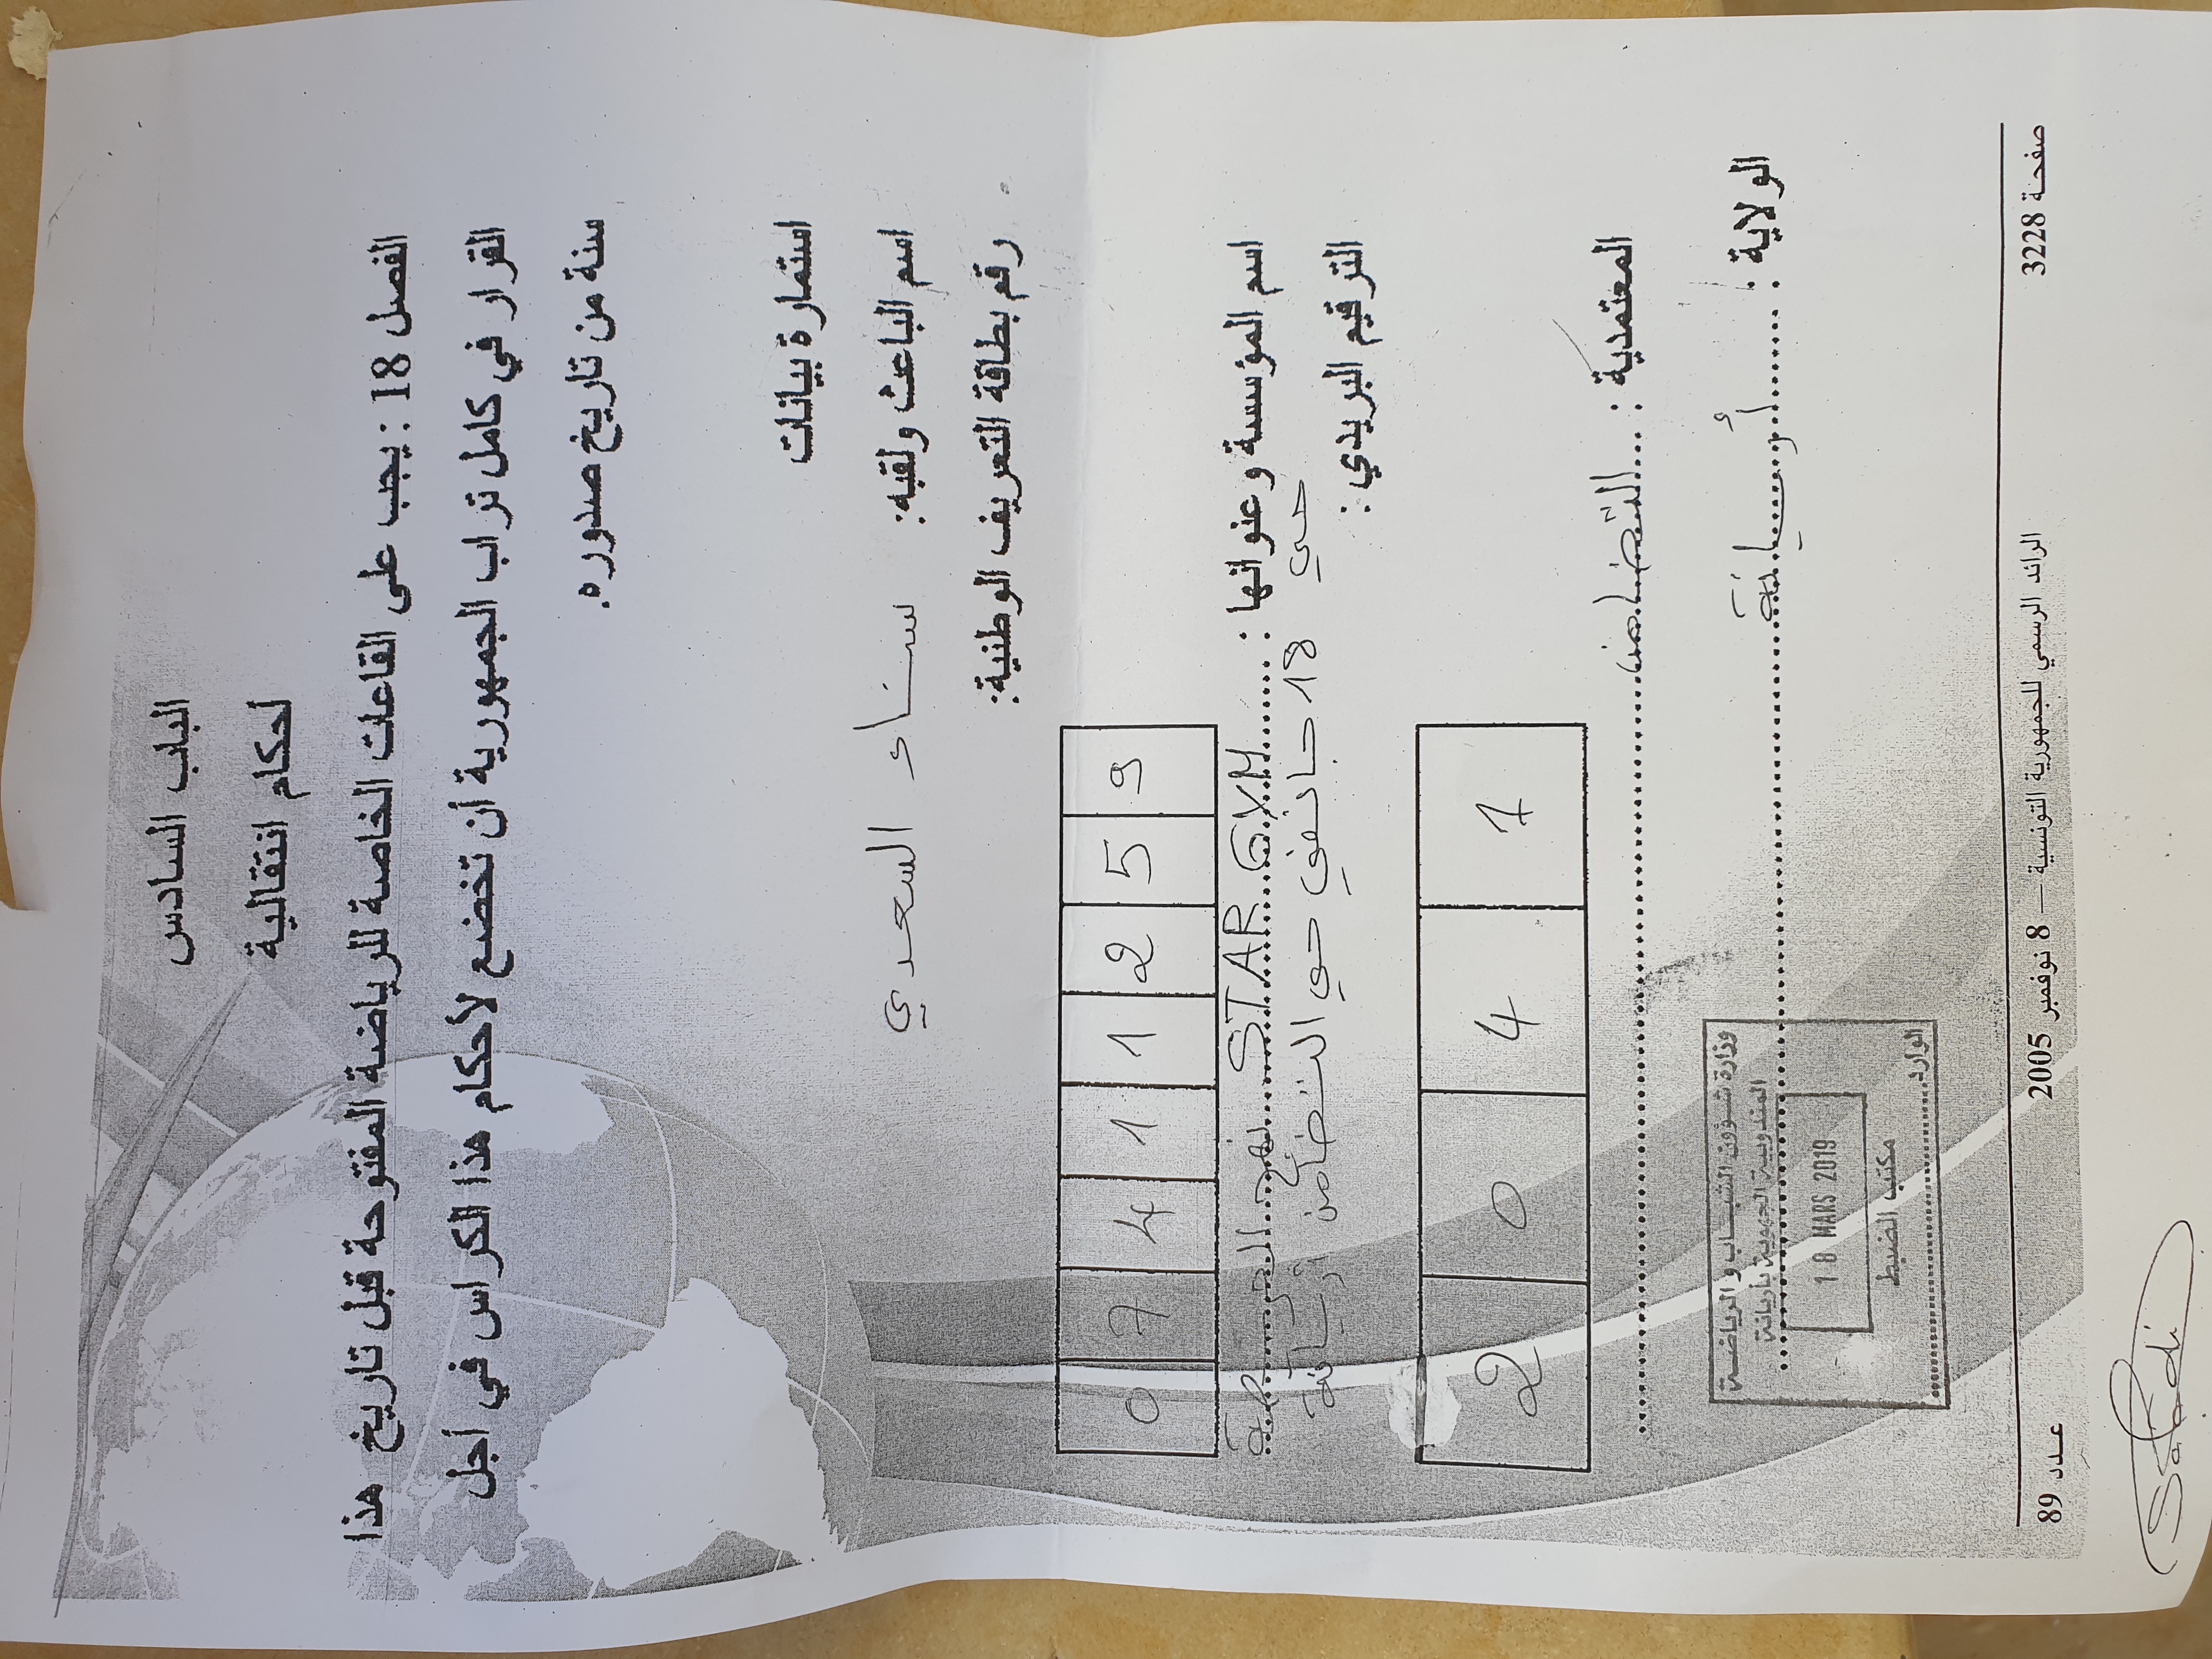 الباب السادس
أحكام انتقالية
الفصل 18 : يجب على القاعات الخاصة للرياضة المفتوحة قبل تاريخ هذا
القرار في كامل تراب الجمهورية أن تخضع لأحكام هذا الكراس في أجل
سنة من تاريخ صدوره.
استمارة بيانات
اسم الباعث ولقبه: سناء السعدي
رقم بطاقة التعريف الوطنية:
0 7 4 1 1 2 5 9
اسم المؤسسة وعنوانها : STAR GYM نهج الحرية
حي 18 جانفي حي التضامن أريانة
الترقيم البريدي :
2 0 4 1
المعتمدية : التضامن
الولاية : أريانة
وزارة شؤون الشباب و الرياضة
المندوبية الجهوية بأريانة
18 MARS 2019
مكتب الضبط
الوارد
عدد 89 الرائد الرسمي للجمهورية التونسية — 8 نوفمبر 2005 صفحة 3228
Saadi